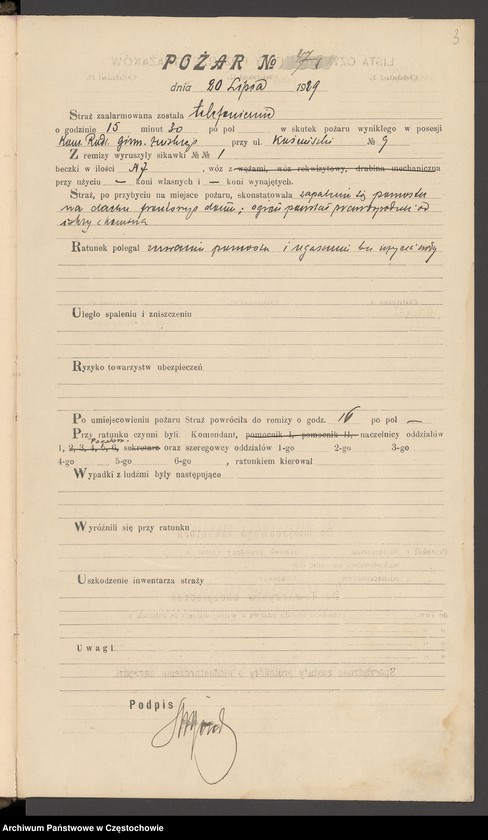 3
POŻAR №
dnia 20 Lipca 1929
Straż zaalarmowana została telefonicznie
o godzinie 15 minut 30 po poł w skutek pożaru wynikłego w posesji
przy ul. № 9
Z remizy wyruszyły sikawki № № 1
beczki w ilości , wóz z wężami, wóz rekwizytowy, drabina mechaniczna
przy użyciu — koni własnych i — koni wynajętych.
Straż, po przybyciu na miejsce pożaru, skonstatowała zapalenie się pomostu
na dachu frontowego domu; ogień powstał prawdopodobnie od
iskry z komina
Ratunek polegał zerwaniu pomostu i ugaszeniu bez użycia wody
Uległo spaleniu i zniszczeniu
Ryzyko towarzystw ubezpieczeń
Po umiejscowieniu pożaru Straż powróciła do remizy o godz. 16 po poł —
Przy ratunku czynni byli: Komendant, pomocnik I, pomocnik II, naczelnicy oddziałów
1, 2, 3, 4, 5, 6, sekretarz oraz szeregowcy oddziałów 1-go 2-go 3-go
4-go 5-go 6-go , ratunkiem kierował
Wypadki z ludźmi były następujące
Wyróżnili się przy ratunku
Uszkodzenie inwentarza straży
Uwagi
Podpis
Archiwum Państwowe w Częstochowie